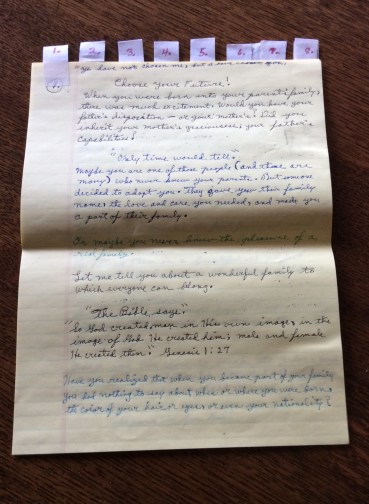 1. 2. 3. 4. 5. 6. 7. 8.
"Ye have not chosen me, but I have chosen you
6.
Choose Your Future!
When you were born into your parent's family,
there was much excitement. Would you have your
father's disposition — or your mother's? Did you
inherit your mother's your father's
capabilities?
"Only time would tell."
Maybe you are one of those people (and there are
many) who never knew your parents. But someone
decided to adopt you. They gave you their family
name, the love and care you needed, and made you
a part of their family.
Or maybe you never knew the pleasure of a
real family.
Let me tell you about a wonderful family to
which everyone can belong.
"The Bible says:"
"So God created man in His own image, in the
image of God He created him; male and female
He created them." Genesis 1:27
Have you realized that when you became part of your family
you had nothing to say about when or where you were born,
the color of your hair or eyes, or even your nationality?